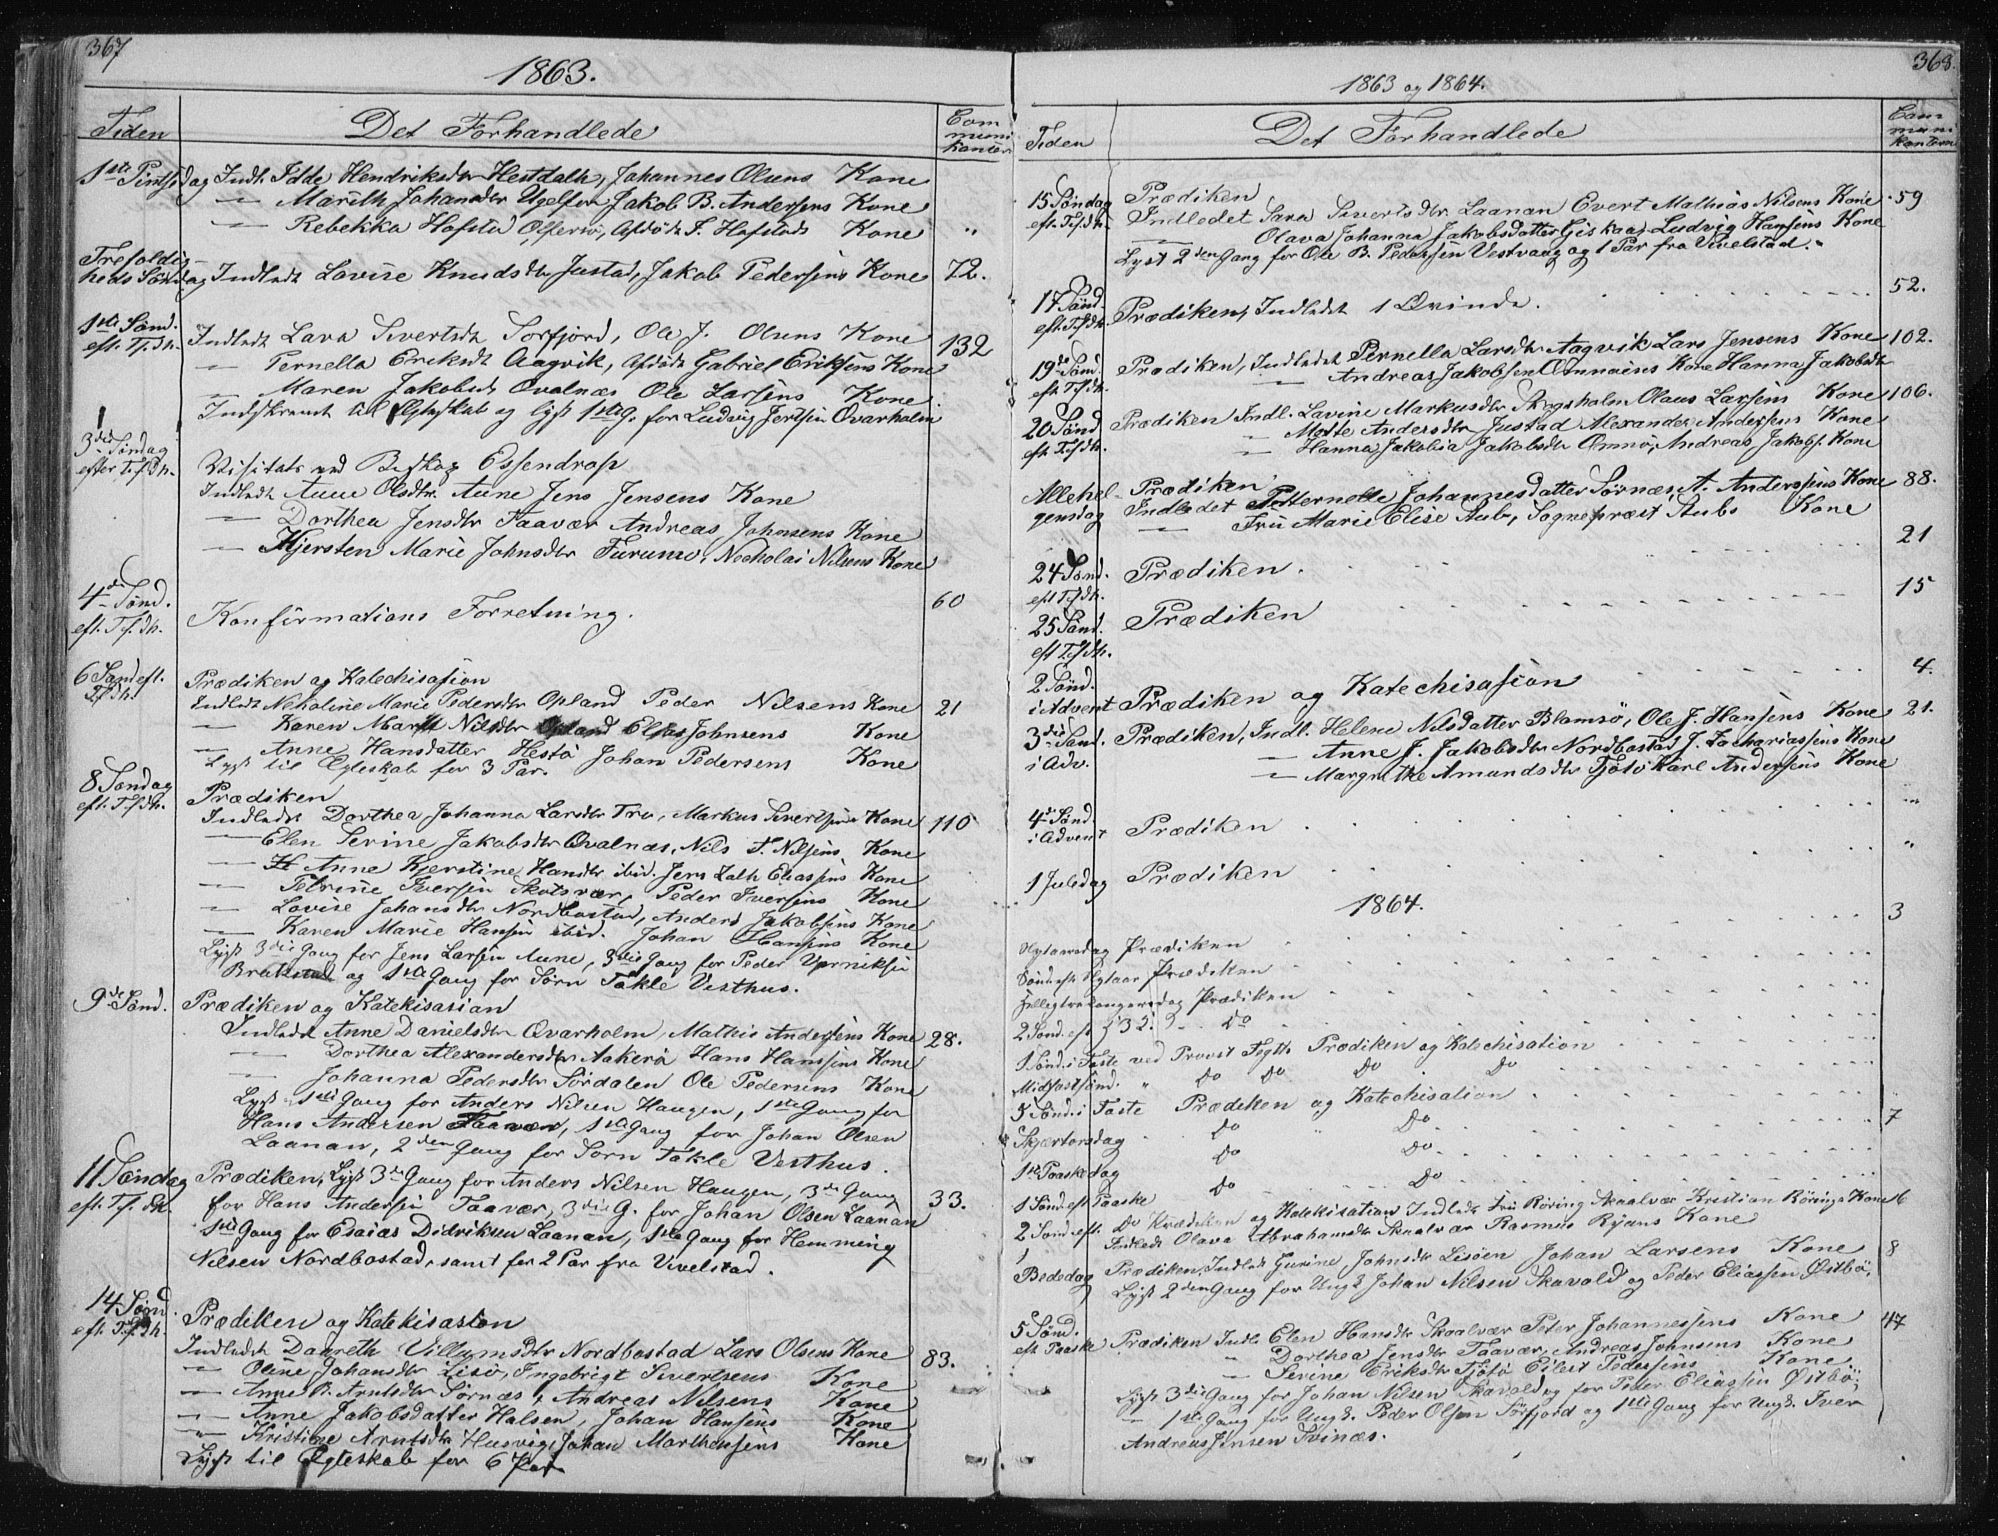 367
1863.
Tiden Det Forhandlede Com muni kanter
1ste Pintsdag Indl. Idde Hendriksdtr Hestdalh, Johannes Olsens Kone
" Marith Johansdtr Ugelfon Jakob B. Andersens Kone
" Rebekka Hofstø Afdøde J. Hofstads Kone "
Trefoldig-
heds Søndag Indledt Lovise Knudsdtr Justad, Jakob Pedersens Kone 72.
1ste Sønd.
eft. Tfdh. Indledt Lava Sivertsdt Sørfjord, Ole J. Olsens Kone 132
" Pernella Eriksdt Aagvik, Afdøde Gabriel Eriksens Kone
" Maren Jakobsdt Qvalnæs Ole Larsens Kone
Indskrevet til Egteskab og lyst 1ste G. for Ludvig Jertsen Qvarholm
3die Søndag
efter Tfdh. Visitats ved Biskop Essendrop
Indledt Anne Olsdtr. Aune Jens Jensens Kone
" Dorthea Jensdtr Taavær Andreas Johnsens Kone
" Kjersten Marie Johnsdtr Furunw, Necholai Nilsens Kone
4de Sønd.
eft. Tfdh. Konfirmations Forretning. 60
6 Sønd eft.
Tfdh. Prædiken og Katechisasion
Indledt Neholine Marie Pedersdtr Opland Peder Nilsens Kone 21
" Karen Marit Nilsdtr Opland Elias Johnsens Kone
" Anne Hansdatter Hestø Johan Pedersens Kone
Lyst til Egteskab for 3 Par.
8 Søndag
eft. Tfdh. Prædiken
Indledet Dorthea Johanna Larsdtr Tro, Markus Sivertsens Kone 110
" Elen Serine Jakobsdtr Qvalnæs, Nils T. Nilsens Kone
" Anne Kjerstine Hansdtr ibid. Jens Zath Eliassens Kone
" Petrine Iversen Skotsvær, Peder Iversens Kone
" Lovise Johansdtr Nordbostad, Anders Jakobsens Kone
" Karen Marie Hansen ibid. Johan Hansens Kone
Lyst 3die Gang for Jens Larsen Aune, 3die Gang for Peder
og 1ste Gang for Sørn Takle Vesthus.
9de Sønd. Prædiken og Katekisasian
Indledet Anne Danielsdtr Qvarholm, Mathis Andersens Kone 28.
" Dorthea Alexandersdtr Aakerø Hans Hanssens Kone
" Johanna Pedersdtr Sørdalen Ole Pedersens Kone
Lyst 1ste Gang for Anders Nilsen Haugen, 1ste Gang for
Hans Andersen Taavær, 1ste Gang for Johan Olsen
Laanan, 2den Gang for Sørn Takle Vesthus.
11 Søndag
eft. Tfdh. Prædiken, Lyst 3die Gang for Anders Nilsen Haugen, 3die Gang 33.
for Hans Andersen Taavær, 3die G. for Johan Olsen Laanan
1ste Gang for Esaias Didriksen Laanan, 1ste Gang for Hemming
Nilsen Nordbostad, samt for 2 Par fra Vivelstad.
14 Sønd.
eft. Tfdh. Prædiken og Katekisasion
Indledet Daareth Villumsdtr Nordbostad Lars Olsens Kone 83.
" Oline Johansdtr Lisø, Ingebrigt Sivertsens Kone
" Anne B. Arntsdtr Sørnæs, Andreas Nilsens Kone
" Anne Jakobsdatter Halsen, Johan Hansens Kone
" Kristine Arntsdtr Husvig, Johan Marthessens Kone
Lyst til Egteskab for 6 Par
368.
1863 og 1864.
Tiden Det Forhandlede Com muni kantern
15 Søndag
eft. Tfdh. Prædiken
Indledet Sara Sivertsdtr Laanan Evert Mathias Nilsens Kone 59
" Olava Johanna Jakobsdatter Giskaa, Ludvig Hansens Kone
Lyst 2den Gang for Ole B. Pedersen Vestvaag og 1 Par fra Vivelstad.
17 Sønd.
eft. Tfdh. Prædiken, Indledet 1 Qvinde. 52.
19de Sønd.
eft Tfdh. Prædiken, Indledet Pernella Larsdtr Aagvik Lars Jensens Kone 102.
" Andreas Jakobsen Omnøens Kone Hanna Jakobsdt
20 Sønd
eft. Tfdh. Prædiken Indl. Lavine Markusdtr Skogsholm Olaus Larsens Kone 106.
" Mette Andersdtr Justad Alexander Andersens Kone
" Hanna Jakobia Jakobsdtr Omnø, Andreas Jakobs. Kone
Allehel-
gensdag Prædiken
Indledet Petternelle Johannesdatter Sørnæs, A. Anderssens Kone 88.
" Fru Marie Elise Aub, Sognepræst Aubs Kone
24 Sønd.
eft Tfdh. Prædiken. 21
25 Sønd.
eft Tfdh. Prædiken 15
2 Sønd.
i Advent Prædiken og Katechisasion 4.
3die Sønd.
i Adv. Prædiken, Indl. Helene Nilsdatter Blamsø, Ole J. Hansens Kone 21.
" Anne J. Jakobsdtr Nordbostad J. Zachariassens Kone
" Margrethe Amundsdtr Tjøtø Karl Andersens Kone
4de Sønd.
i Advent Prædiken "
1 Juledag Prædiken "
1864.
Nytaarsdag Prædiken 3
Sønd. eft Nytaar Prædiken
Helligtrekongersdag Prædiken
2 Sønd. eft H3K.D. Do
1 Sønd. i Faste ved Provst Fogth Prædiken og Katechisation
Midfastsønd. " Do Do Do Do
5 Sønd. i Faste Prædiken og Katechisation
Skjærtorsdag Do " Do 7
1ste Paaskedag Do Do
1 Sønd. eft Paaske Do Do
2 Sønd. eft. Do Prædiken og Katekisation Indledt Fru Röring Skaalvær Kristian Rörings Kone 6
Indledt Olava Abrahamsdtr Skaalvær Rasmus Kone
1
Bededag Prædiken, Indledt Gurine Johnsdtr Lisöen Johan Larsens Kone 8
Lyst 2den Gang for Ungk Johan Nilsen Skavold og Peder Eliassen Østbø.
5 Sønd.
eft Paaske Prædiken Indl. Elen Hansdtr Skaalvær Peter Johannessens Kone 47
" Dorthea Jensdtr Taavær, Andreas Johnsens Kone
" Sevine Eriksdtr Tjøtø Eilert Pedersens Kone
Lyst 3die Gang for Johan Nilsen Skavold og for Peder Eliassen Østbø.
" 1ste Gang for Ungk. Peder Olsen Sørfjord og 1ste Gang for Ungk. Iver
Andreas Jensen Tvinæs.